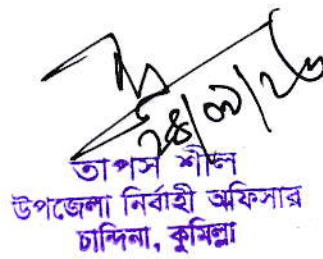 তাপস শীল
উপজেলা নির্বাহী অফিসার
চান্দিনা, কুমিল্লা